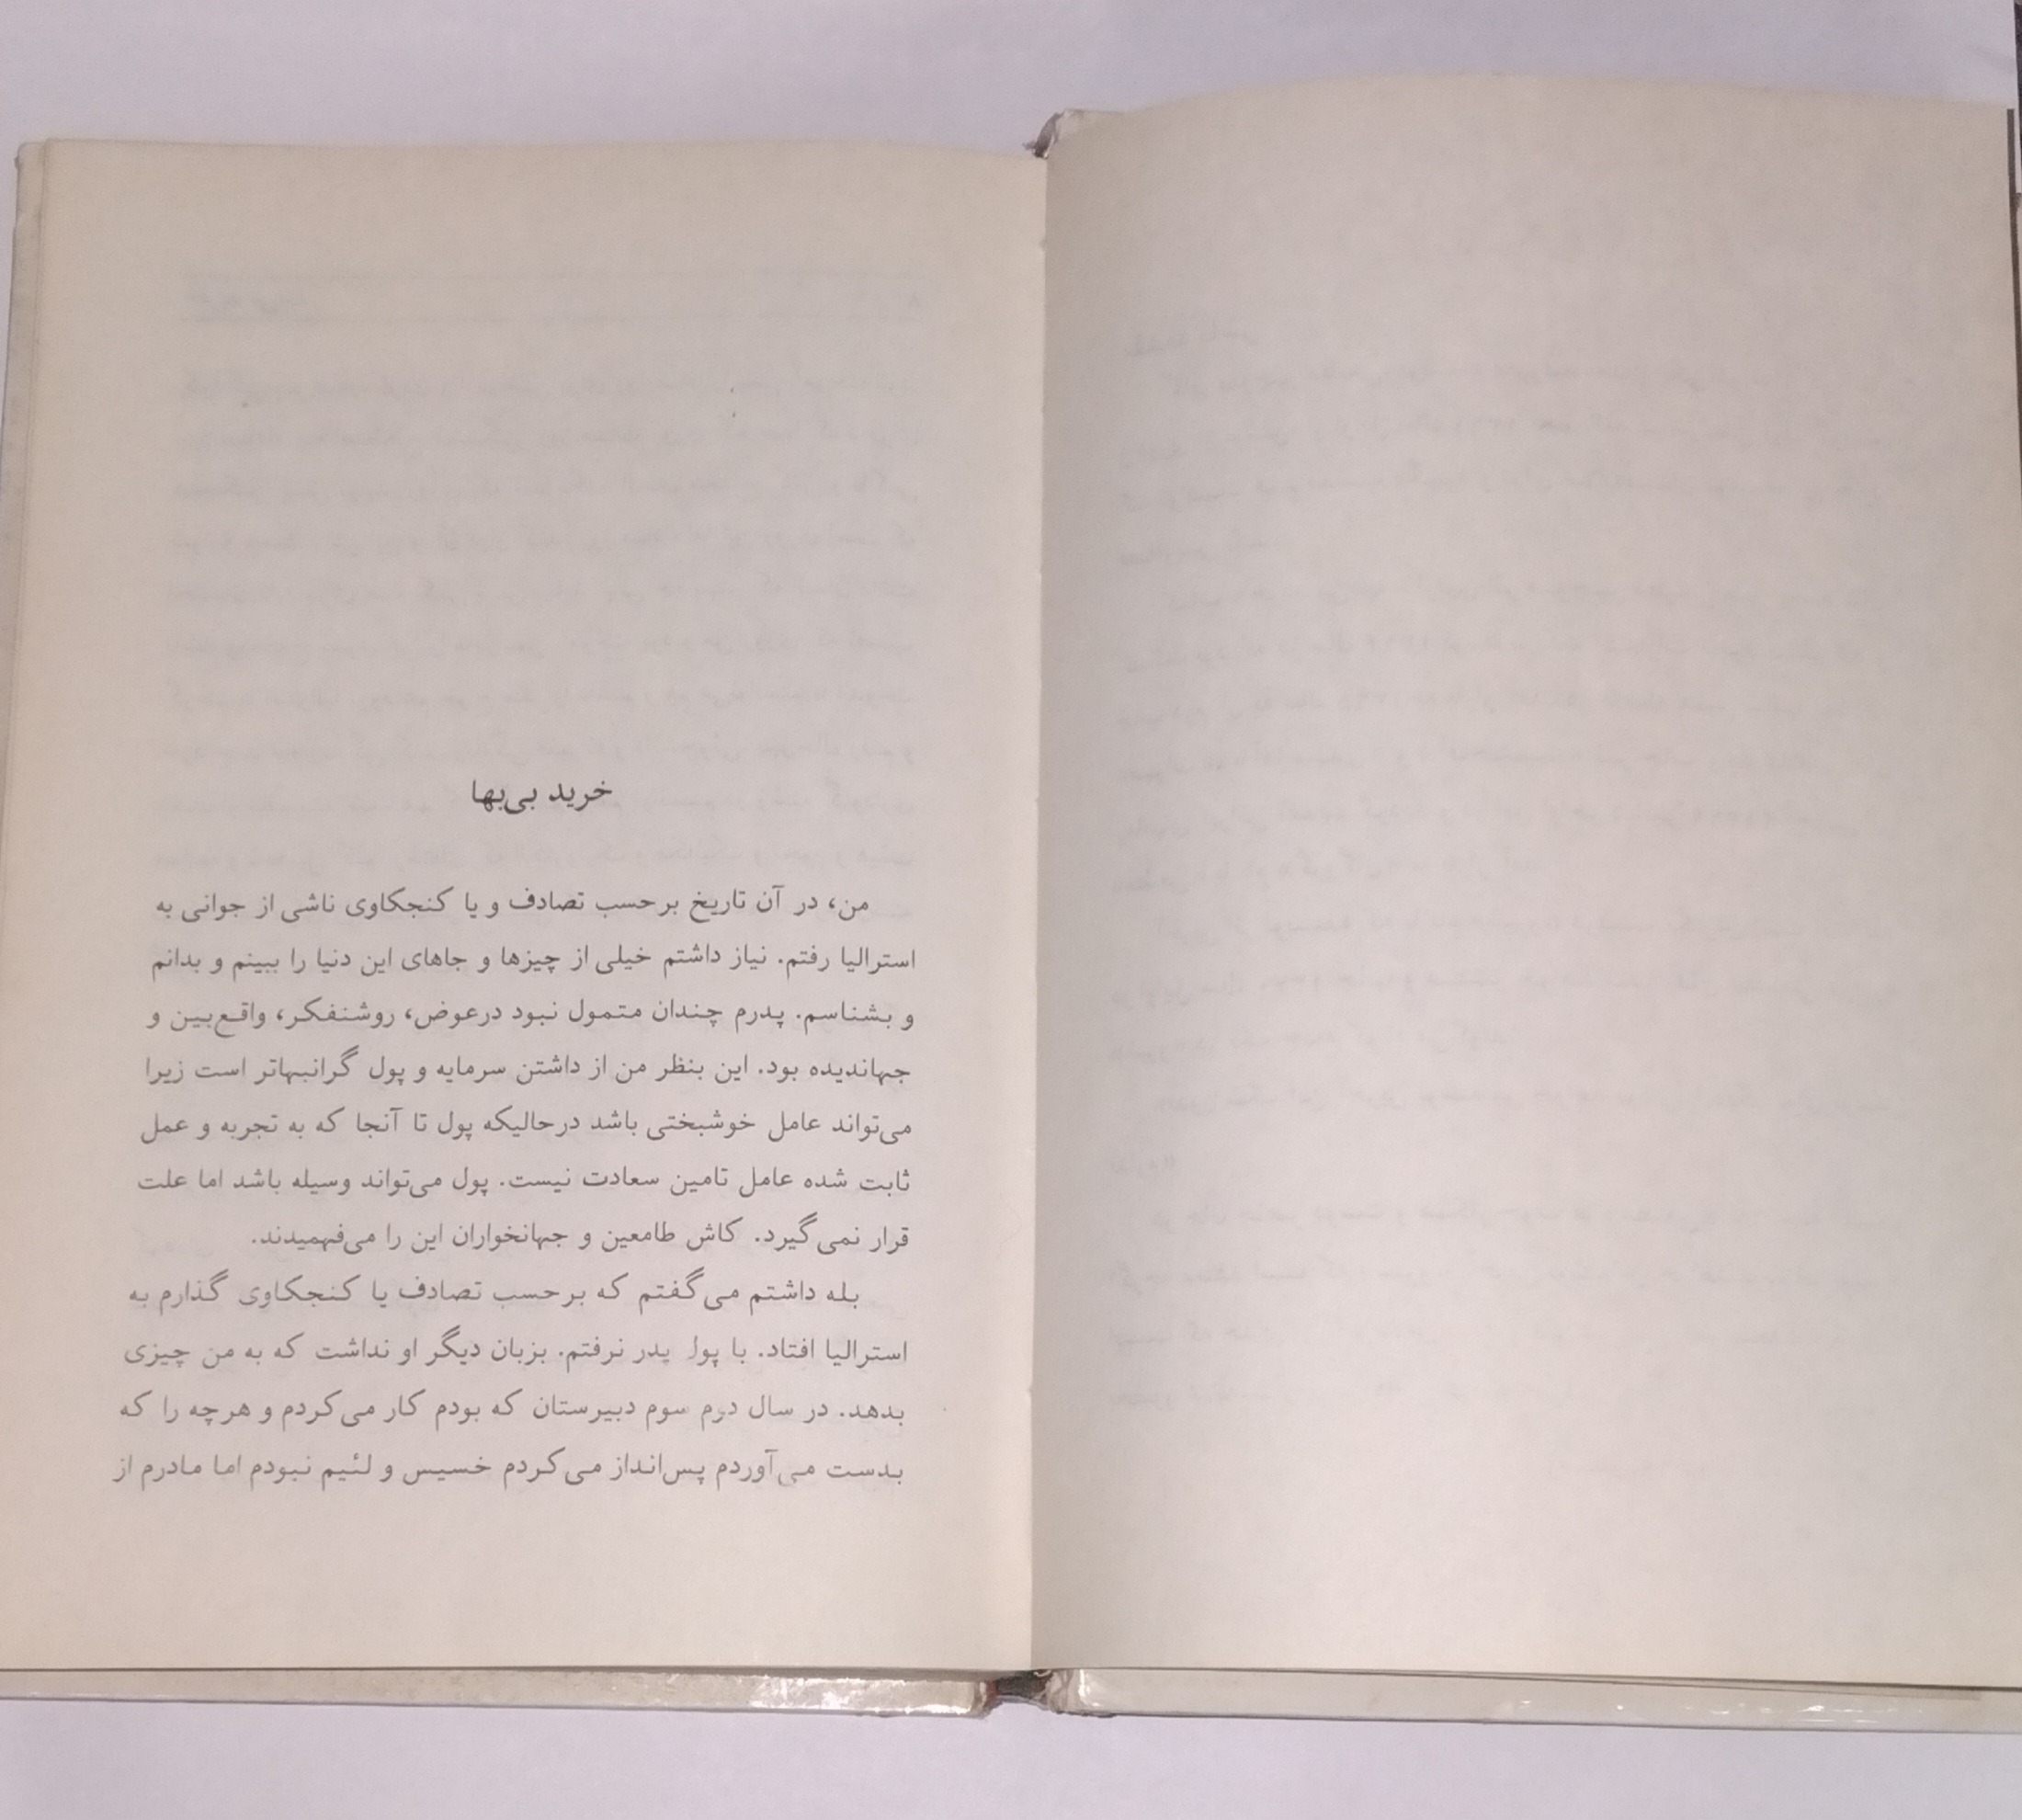 خرید بی‌بها
من، در آن تاریخ برحسب تصادف و یا کنجکاوی ناشی از جوانی به
استرالیا رفتم. نیاز داشتم خیلی از چیزها و جاهای این دنیا را ببینم و بدانم
و بشناسم. پدرم چندان متمول نبود درعوض، روشنفکر، واقع‌بین و
جهاندیده بود. این بنظر من از داشتن سرمایه و پول گرانبهاتر است زیرا
می‌تواند عامل خوشبختی باشد درحالیکه پول تا آنجا که به تجربه و عمل
ثابت شده عامل تامین سعادت نیست. پول می‌تواند وسیله باشد اما علت
قرار نمی‌گیرد. کاش طامعین و جهانخواران این را می‌فهمیدند.
بله داشتم می‌گفتم که برحسب تصادف یا کنجکاوی گذارم به
استرالیا افتاد. با پول پدر نرفتم. بزبان دیگر او نداشت که به من چیزی
بدهد. در سال سوم دبیرستان که بودم کار می‌کردم و هرچه را که
بدست می‌آوردم پس‌انداز می‌کردم خسیس و لئیم نبودم اما مادرم از